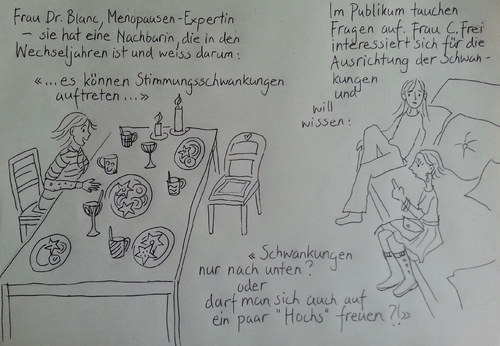 Frau Dr. Blanc, Menopausen-Expertin
– sie hat eine Nachbarin, die in den
Wechseljahren ist und weiss darum:
«...es können Stimmungsschwankungen
auftreten...»
Im Publikum tauchen
Fragen auf. Frau C. Frei
interessiert sich für die
Ausrichtung der Schwan-
kungen
und
will
wissen:
«Schwankungen
nur nach unten?
oder
darf man sich auch auf
ein paar "Hochs" freuen?!»